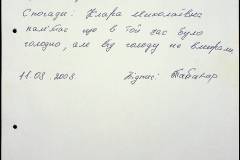 Спогади: Клара Миколаївна
пам'ятає що в той час було
голодно, але від голоду не вмирали.
11.08.2008. Підпис: Табакар